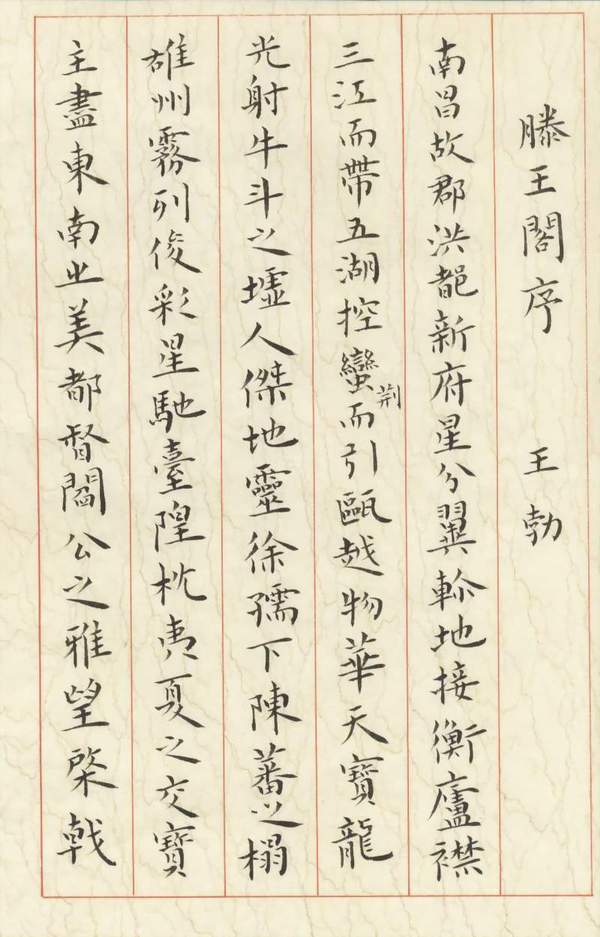 滕王閣序 王勃
南昌故郡洪都新府星分翼軫地接衡廬襟
三江而帶五湖控蠻荊而引甌越物華天寶龍
光射牛斗之墟人傑地靈徐孺下陳蕃之榻
雄州霧列俊彩星馳臺隍枕夷夏之交賓
主盡東南之美都督閻公之雅望棨戟